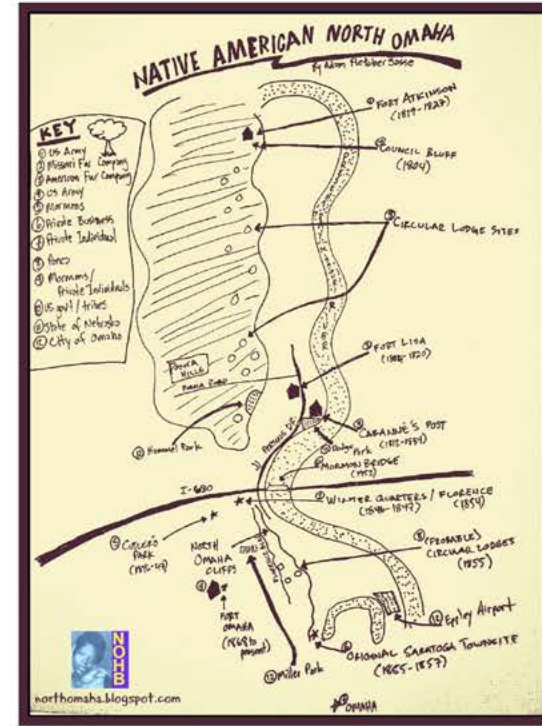 NATIVE AMERICAN NORTH OMAHA
by Adam Fletcher Sasse
KEY
① US Army
② Missouri Fur Company
③ American Fur Company
④ US Army
⑤ Mormons
⑥ Private Business
⑦ Private Individual
⑧ Ponca
⑨ Mormons/
Private Individuals
⑩ US govt/tribes
⑪ State of Nebraska
⑫ City of Omaha
FORT ATKINSON
(1819-1827)
COUNCIL BLUFF
(1804)
CIRCULAR LODGE SITES
RIVER
PONCA
HILLS
PONCA ROAD
FORT LISA
CABANNE'S POST
Dodge
Park
⑫ Hummel Park
MORMON BRIDGE
(1952)
I-680
WINTER QUARTERS / FLORENCE
(1846-1847)
(1854)
CUTLER'S
PARK
NORTH
OMAHA
CLIFFS
(PROBABLE)
CIRCULAR LODGES
(1855)
FORT
OMAHA
(1868 to
present)
⑫ Eppley Airport
ORIGINAL SARATOGA TOWNSITE
(1855-1857)
⑫ Miller Park
OMAHA
NOHB
northomaha.blogspot.com